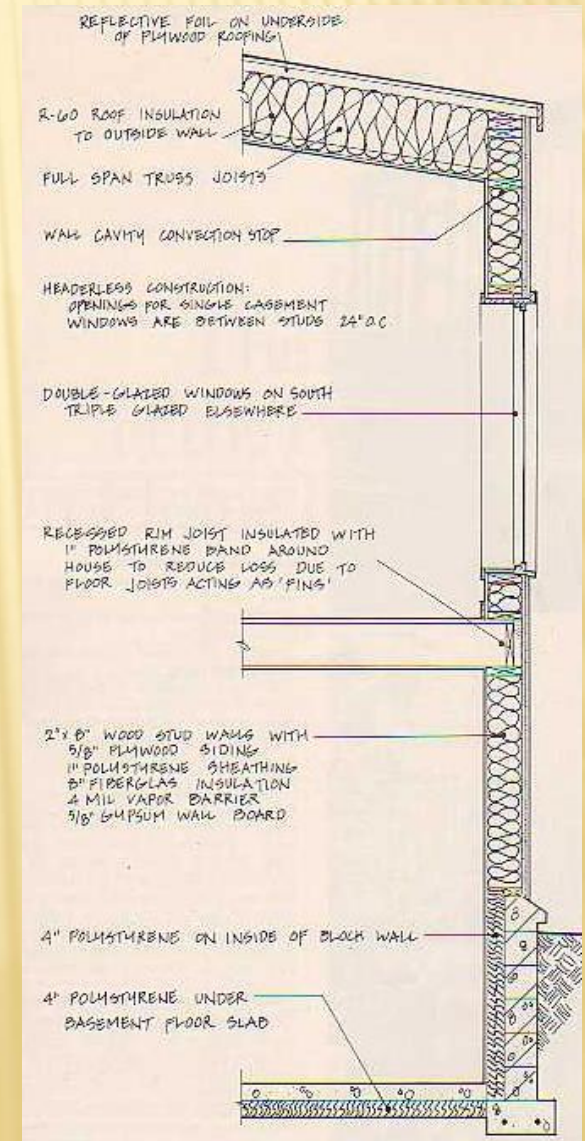 REFLECTIVE FOIL ON UNDERSIDE
OF PLYWOOD ROOFING
R-60 ROOF INSULATION
TO OUTSIDE WALL
FULL SPAN TRUSS JOISTS
WALL CAVITY CONVECTION STOP
HEADERLESS CONSTRUCTION:
OPENINGS FOR SINGLE CASEMENT
WINDOWS ARE BETWEEN STUDS 24" O.C
DOUBLE-GLAZED WINDOWS ON SOUTH
TRIPLE GLAZED ELSEWHERE
RECESSED RIM JOIST INSULATED WITH
1" POLYSTYRENE BAND AROUND
HOUSE TO REDUCE LOSS DUE TO
FLOOR JOISTS ACTING AS 'FINS'
2" x 8" WOOD STUD WALLS WITH
5/8" PLYWOOD SIDING
1" POLYSTYRENE SHEATHING
8" FIBERGLAS INSULATION
4 MIL VAPOR BARRIER
5/8" GYPSUM WALL BOARD
4" POLYSTYRENE ON INSIDE OF BLOCK WALL
4" POLYSTYRENE UNDER
BASEMENT FLOOR SLAB